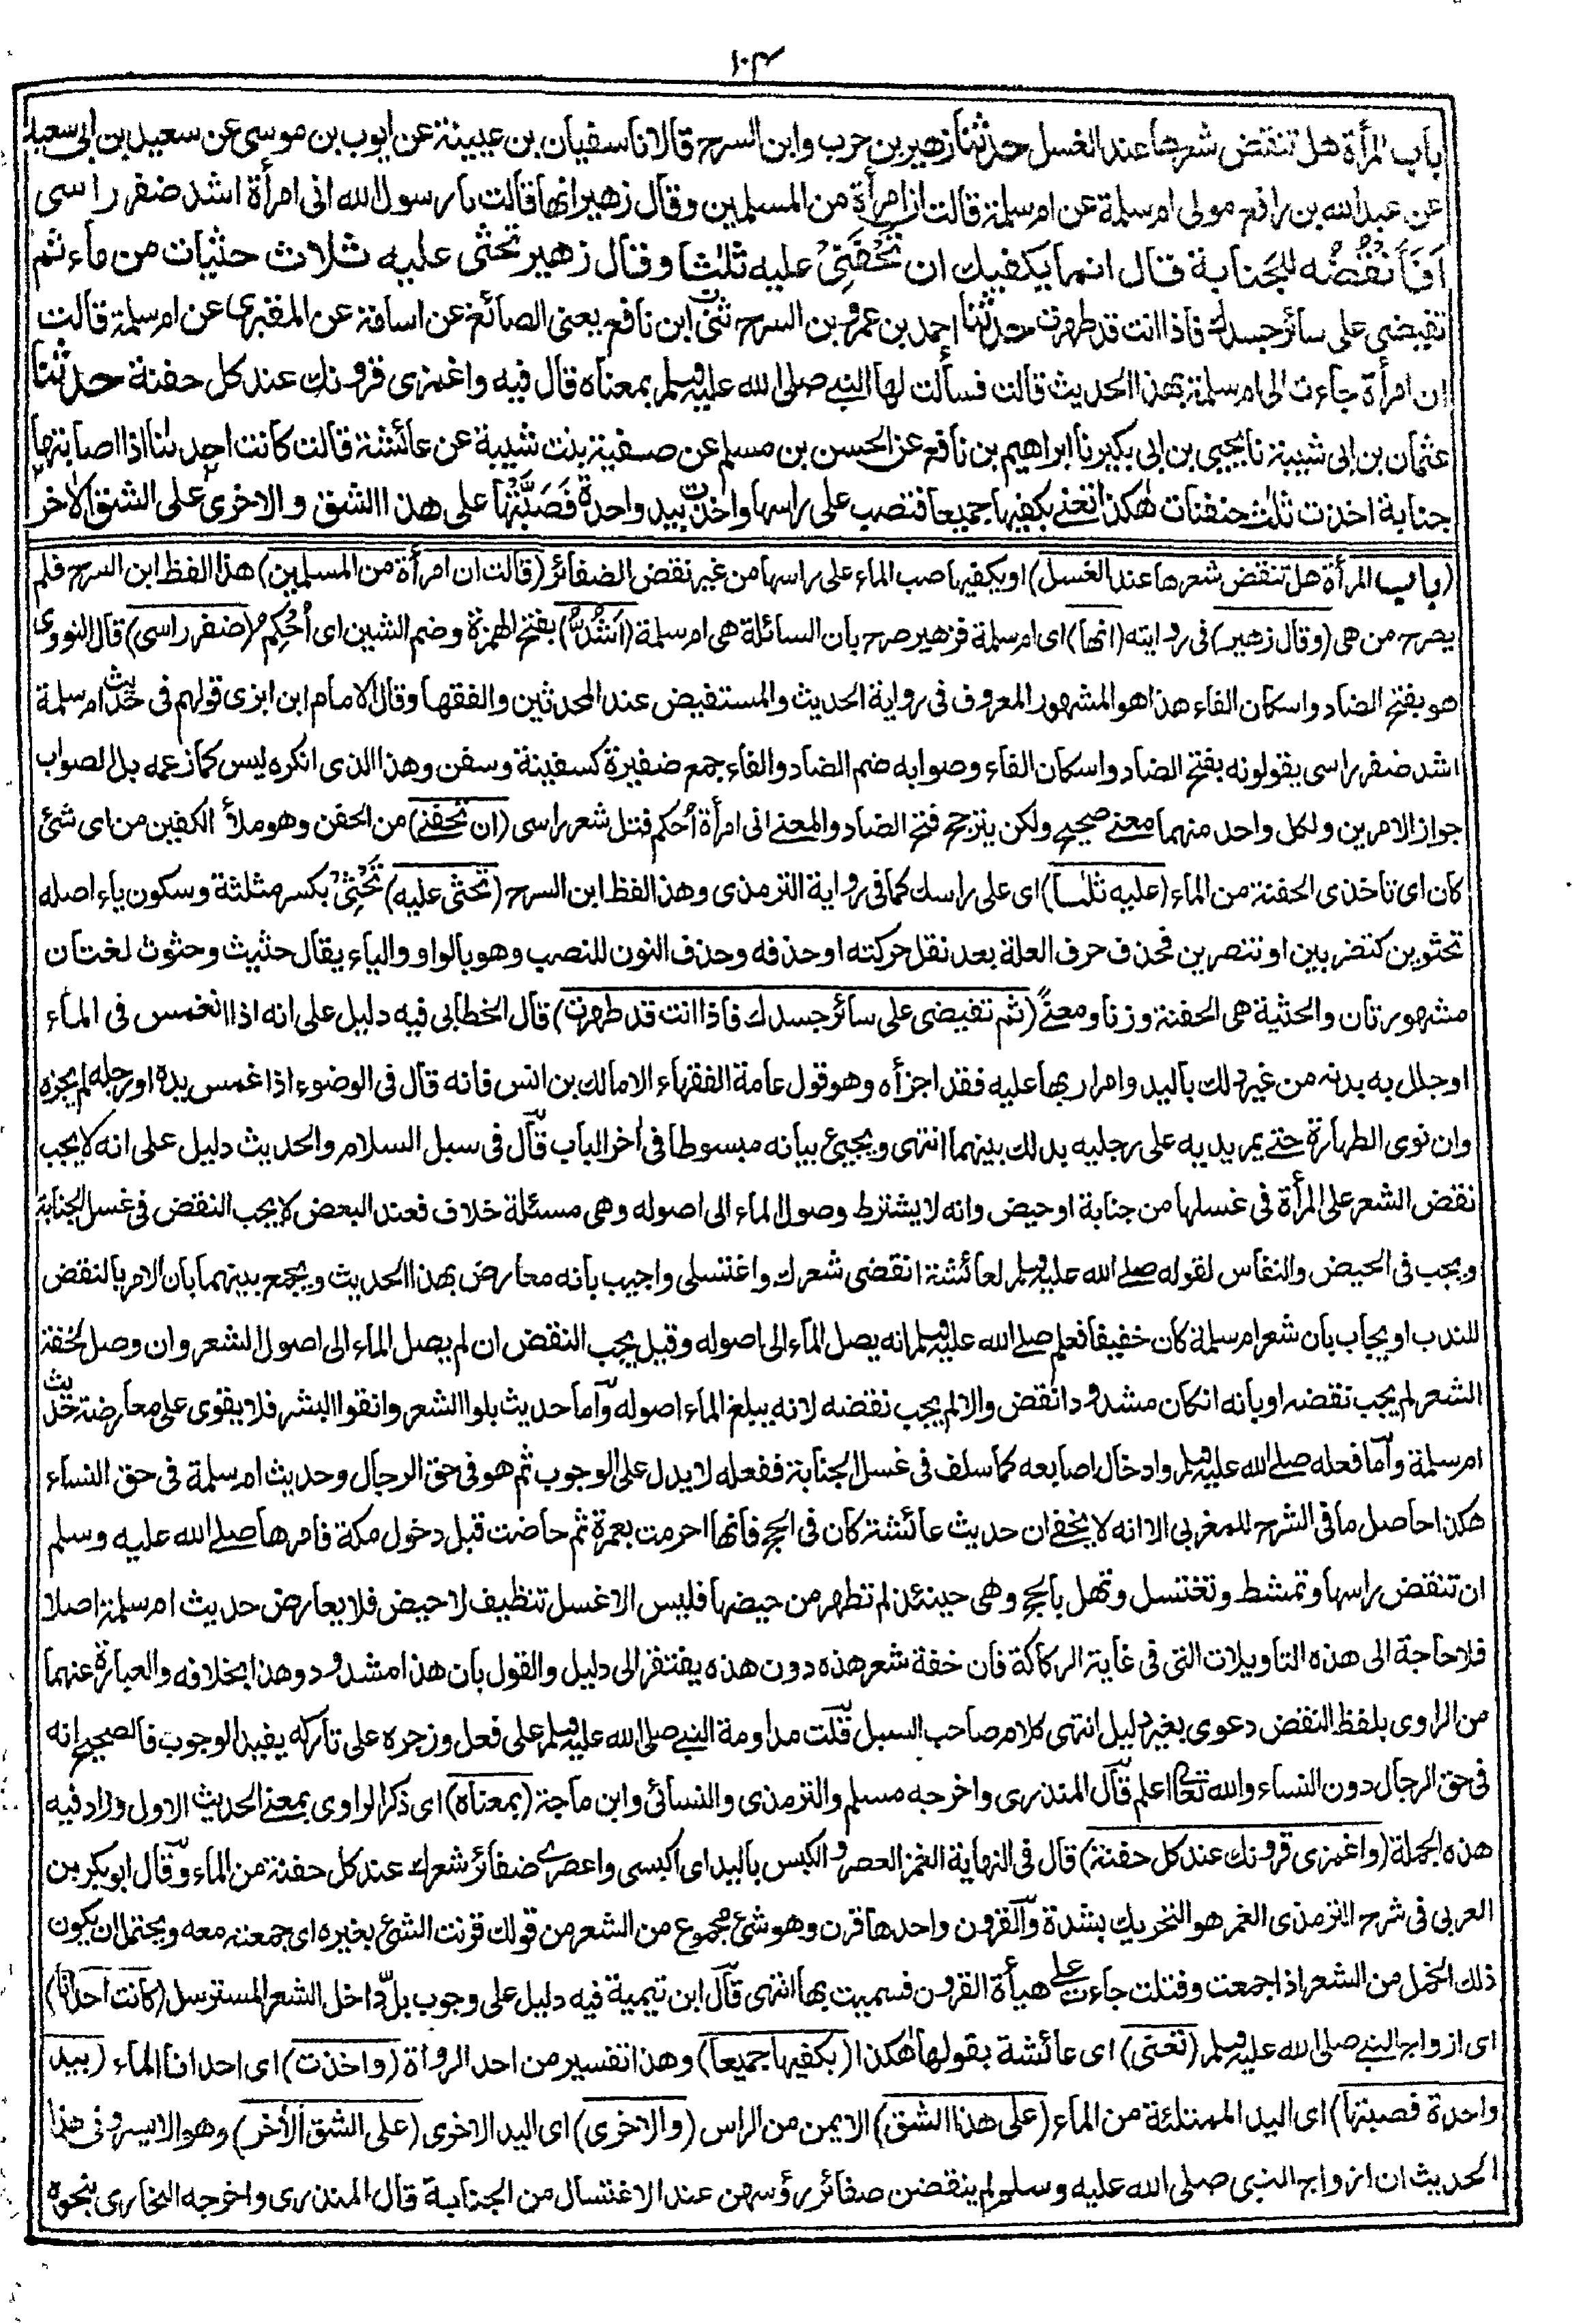 ١٠٤
باب المرأة هل تنقض شعرها عند الغسل حدثنا زهير بن حرب وابن السرح قالا نا سفيان بن عيينة عن ايوب بن موسى عن سعيد بن ابى سعيد
عن عبد الله بن رافع مولى ام سلمة عن ام سلمة قالت ان امرأة من المسلمين وقال زهير انها قالت يا رسول الله انى امرأة اشد ضفر راسى
اَفَاَنْقُضُه للجَنابة قال انما يكفيك ان تَحْفَنِىْ عليه ثلثا وقال زهير تحثى عليه ثلاث حثيات من ماء ثم
تفيضى على سائر جسدك فاذا انت قد طهرت حدثنا احمد بن عمرو بن السرح ثنى ابن نافع يعنى الصائغ عن اسامة عن المقبرى عن ام سلمة قالت
ان امرأة جاءت الى ام سلمة بهذا الحديث قالت فسألت لها النبى صلى الله عليه وسلم بمعناه قال فيه واغمزى قرونك عند كل حفنة حدثنا
عثمان بن ابى شيبة نا يحيى بن ابى بكير نا ابراهيم بن نافع عن الحسن بن مسلم عن صفية بنت شيبة عن عائشة قالت كانت احدىنا اذا اصابتها
جنابة اخذت ثلث حفنات هكذا تعنى بكفيها جميعا فتصب على راسها واخذت بيد واحدة فَصَبَّتْهَا على هذا الشق والاخرى على الشق الاخر
(باب المرأة هل تنقض شعرها عند الغسل) او يكفيها صب الماء على راسها من غير نقض الضفائر (قالت ان امرأة من المسلمين) هذا لفظ ابن السرح فلم
يصرح من هى (وقال زهير) فى روايته (انها) اى ام سلمة فزهير صرح بان السائلة هى ام سلمة (اَشُدُّ) بفتح الهمزة وضم الشين اى اُحْكِمُ (ضفر راسى) قال النووى
هو بفتح الضاد واسكان الفاء هذا هو المشهور المعروف فى رواية الحديث والمستفيض عند المحدثين والفقهاء وقال الامام ابن ابزى قولهم فى حديث ام سلمة
اشد ضفر راسى يقولونه بفتح الضاد واسكان الفاء وصوابه ضم الضاد والفاء جمع ضفيرة كسفينة وسفن وهذا الذى انكره ليس كما زعمه بل الصواب
جواز الامرين ولكل واحد منهما معنى صحيح ولكن يترجح فتح الضاد والمعنى انى امرأة اُحكم فتل شعر راسى (ان تحفنى) من الحفن وهو ملأ الكفين من اى شئ
كان اى تاخذى الحفنة من الماء (عليه ثلثا) اى على راسك كما فى رواية الترمذى وهذا لفظ ابن السرح (تحثى عليه) تَحْثِىْ بكسر مثلثة وسكون ياء اصله
تحثوين كتضربين او تنصرين فحذف حرف العلة بعد نقل حركته او حذفه وحذف النون للنصب وهو بالواو والياء يقال حثيث وحثوث لغتان
مشهورتان والحثية هى الحفنة وزنا ومعنًى (ثم تفيضى على سائر جسدك فاذا انت قد طهرت) قال الخطابى فيه دليل على انه اذا انغمس فى الماء
او جلل به بدنه من غير دلك باليد وامرار بها عليه فقد اجزأه وهو قول عامة الفقهاء الا مالك بن انس فانه قال فى الوضوء اذا غمس يده او رجله لم يجزه
وان نوى الطهارة حتى يمر يديه على رجليه يدلك بينهما انتهى ويجيئ بيانه مبسوطا فى اٰخر الباب قال فى سبل السلام والحديث دليل على انه لا يجب
نقض الشعر على المرأة فى غسلها من جنابة او حيض وانه لا يشترط وصول الماء الى اصوله وهى مسئلة خلاف فعند البعض لا يجب النقض فى غسل الجنابة
ويجب فى الحيض والنفاس لقوله صلى الله عليه وسلم لعائشة انقضى شعرك واغتسلى واجيب بانه معارض بهذا الحديث ويجمع بينهما بان الامر بالنقض
للندب او يجاب بان شعر ام سلمة كان خفيفا فعلم صلى الله عليه وسلم انه يصل الماء الى اصوله وقيل يجب النقض ان لم يصل الماء الى اصول الشعر وان وصل لخفة
الشعر لم يجب نقضه او بانه ان كان مشدودا نقض والا لم يجب نقضه لانه يبلغ الماء اصوله واما حديث بلوا الشعر وانقوا البشر فلا يقوى على معارضة حديث
ام سلمة واما فعله صلى الله عليه وسلم وادخال اصابعه كما سلف فى غسل الجنابة ففعله لا يدل على الوجوب ثم هو فى حق الرجال وحديث ام سلمة فى حق النساء
هكذا حاصل ما فى الشرح للمغربى الا انه لا يخفى ان حديث عائشة كان فى الحج فانها احرمت بعمرة ثم حاضت قبل دخول مكة فامرها صلى الله عليه وسلم
ان تنقض راسها وتمشط وتغتسل وتهل بالحج وهى حينئذ لم تطهر من حيضها فليس الا غسل تنظيف لا حيض فلا يعارض حديث ام سلمة اصلا
فلا حاجة الى هذه التاويلات التى فى غاية الركاكة فان خفة شعر هذه دون هذه يفتقر الى دليل والقول بان هذا مشدود وهذا بخلافه والعبارة عنهما
من الراوى بلفظ النقض دعوى بغير دليل انتهى كلام صاحب السبل قلت مداومة النبى صلى الله عليه وسلم على فعل وزجره على تاركه يفيد الوجوب فالصحيح انه
فى حق الرجال دون النساء والله تعالى اعلم قال المنذرى واخرجه مسلم والترمذى والنسائى وابن ماجة (بمعناه) اى ذكر الراوى بمعنى الحديث الاول وزاد فيه
هذه الجملة (واغمزى قرونك عند كل حفنة) قال فى النهاية الغمز العصر والكبس باليد اى اكبسى واعصرى ضفائر شعرك عند كل حفنة من الماء وقال ابو بكر بن
العربى فى شرح الترمذى الغمر هو التحريك بشدة والقرون واحدها قرن وهو شئ مجموع من الشعر من قولك قرنت الشئ بغيره اى جمعته معه ويحتمل ان يكون
ذلك الخمل من الشعر اذا جمعت وفتلت جاءت على هيأة القرون فسميت بها انتهى قال ابن تيمية فيه دليل على وجوب بلّ داخل الشعر المسترسل (كانت احدانا)
اى ازواج النبى صلى الله عليه وسلم (تعنى) اى عائشة بقولها هكذا (بكفيها جميعا) وهذا تفسير من احد الرواة (واخذت) اى احدانا الماء (بيد
واحدة فصبتها) اى اليد الممتلئة من الماء (على هذا الشق) الايمن من الراس (والاخرى) اى اليد الاخرى (على الشق الاٰخر) وهو الايسر وفى هذا
الحديث ان ازواج النبى صلى الله عليه وسلم لم ينقضن ضفائر رؤسهن عند الاغتسال من الجنابة قال المنذرى واخرجه البخارى بنحوه